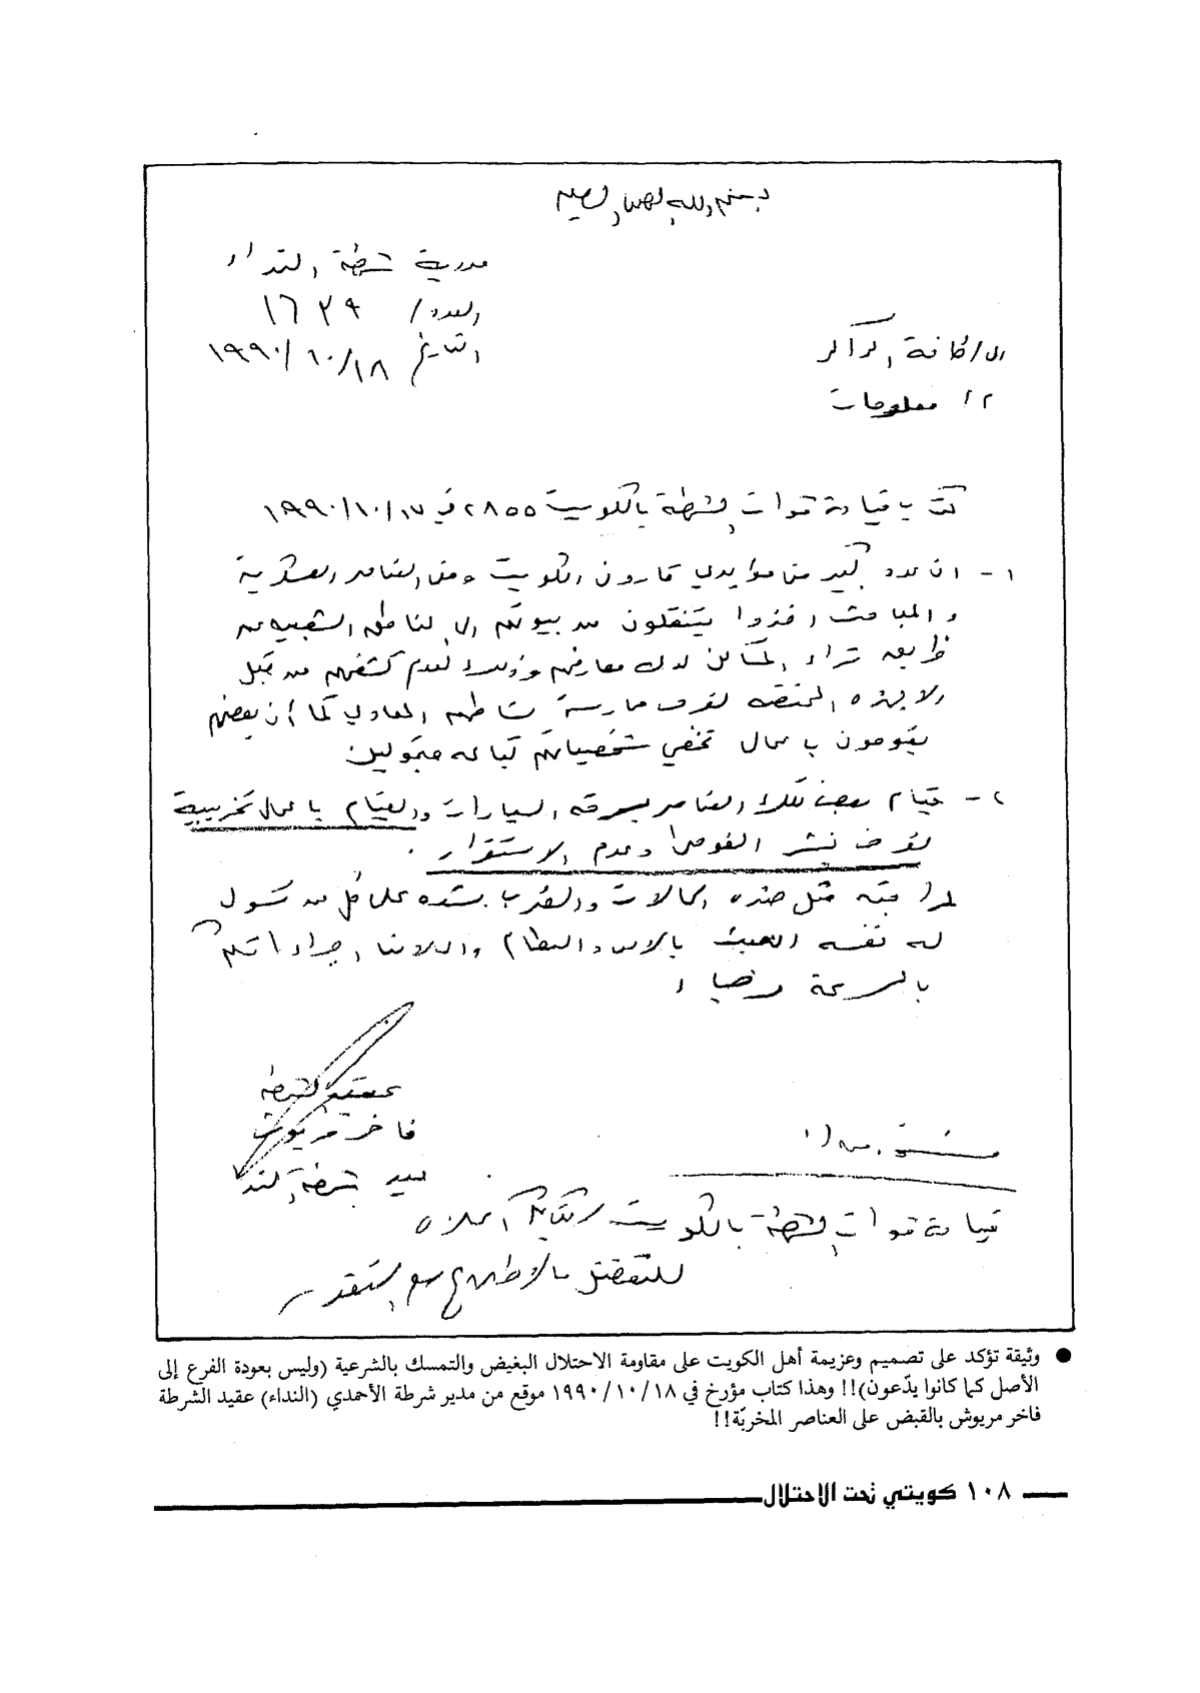 بسم الله الرحمن الرحيم
مديرية شرطة النداء
العدد / ١٦٣٩
التاريخ ١٩٩٠/١٠/١٨
الى / كافة المراكز
م / معلومات
كتاب قيادة قوات الشرطة بالكويت ٢٨٥٥ في ١٩٩٠/١٠/١٧
١ - ان عدد كبير من مؤيدي قارون الكويت ومن العناصر العسكرية
والمباحث اخذوا يتنقلون من بيوتهم الى المناطق الشعبية عن
طريق شراء المساكن لدى معارفهم وذلك لعدم كشفهم من قبل
الاجهزة المختصه لغرض ممارسة نشاطهم المعادي كما أن بعضهم
يقومون باعمال تخفي شخصياتهم كباعه متجولين
٢ - قيام بعض تلك العناصر بسرقه السيارات والقيام باعمال تخريبية
لغرض نشر الفوضى وعدم الاستقرار .
لمراقبه مثل هذه الحالات والضرب بشده على كل من تسول
له نفسه العبث بالامن والنظام واعلامنا اجراءاتكم
بالسرعة رجاءا
عقيد الشرطة
فاخر مريوش
مدير شرطة النداء
نسخة منه الى
قيادة قوات الشرطة بالكويت / كتابكم اعلاه
للتفضل بالاطلاع مع التقدير
● وثيقة تؤكد على تصميم وعزيمة أهل الكويت على مقاومة الاحتلال البغيض والتمسك بالشرعية (وليس بعودة الفرع إلى
الأصل كما كانوا يدّعون)!! وهذا كتاب مؤرخ في ١٩٩٠/١٠/١٨ موقع من مدير شرطة الأحمدي (النداء) عقيد الشرطة
فاخر مريوش بالقبض على العناصر المخربّة!!
١٠٨ كويتي تحت الاحتلال